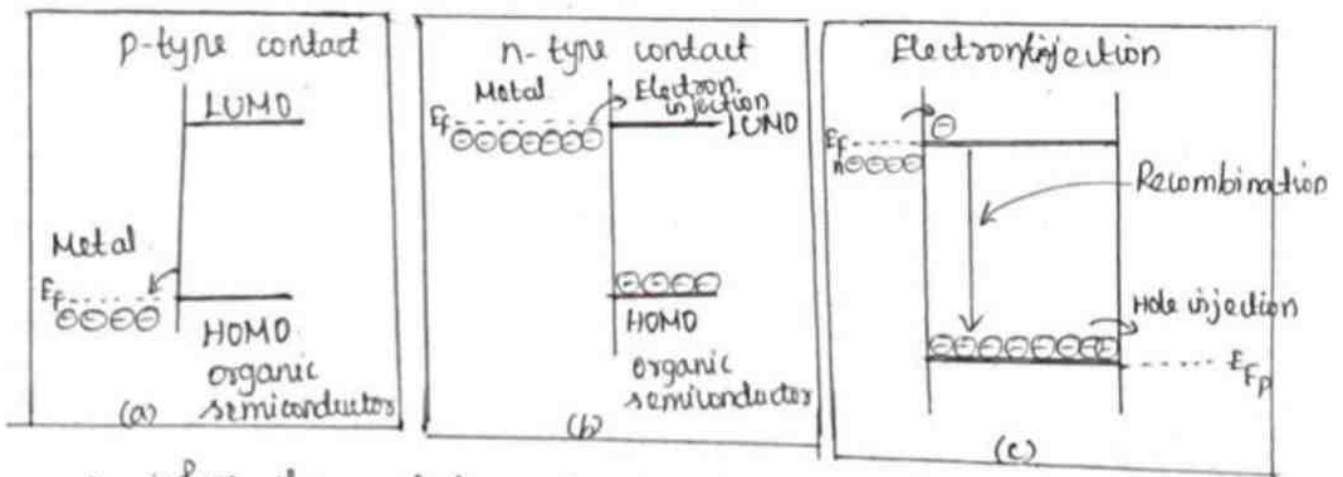 p-type contact
LUMO
Metal
EF
HOMO
organic
semiconductor
(a)
n-type contact
Metal
Electron
injection
EF
LUMO
HOMO
organic
semiconductor
(b)
Electron injection
EF
n
Recombination
Hole injection
EFp
(c)